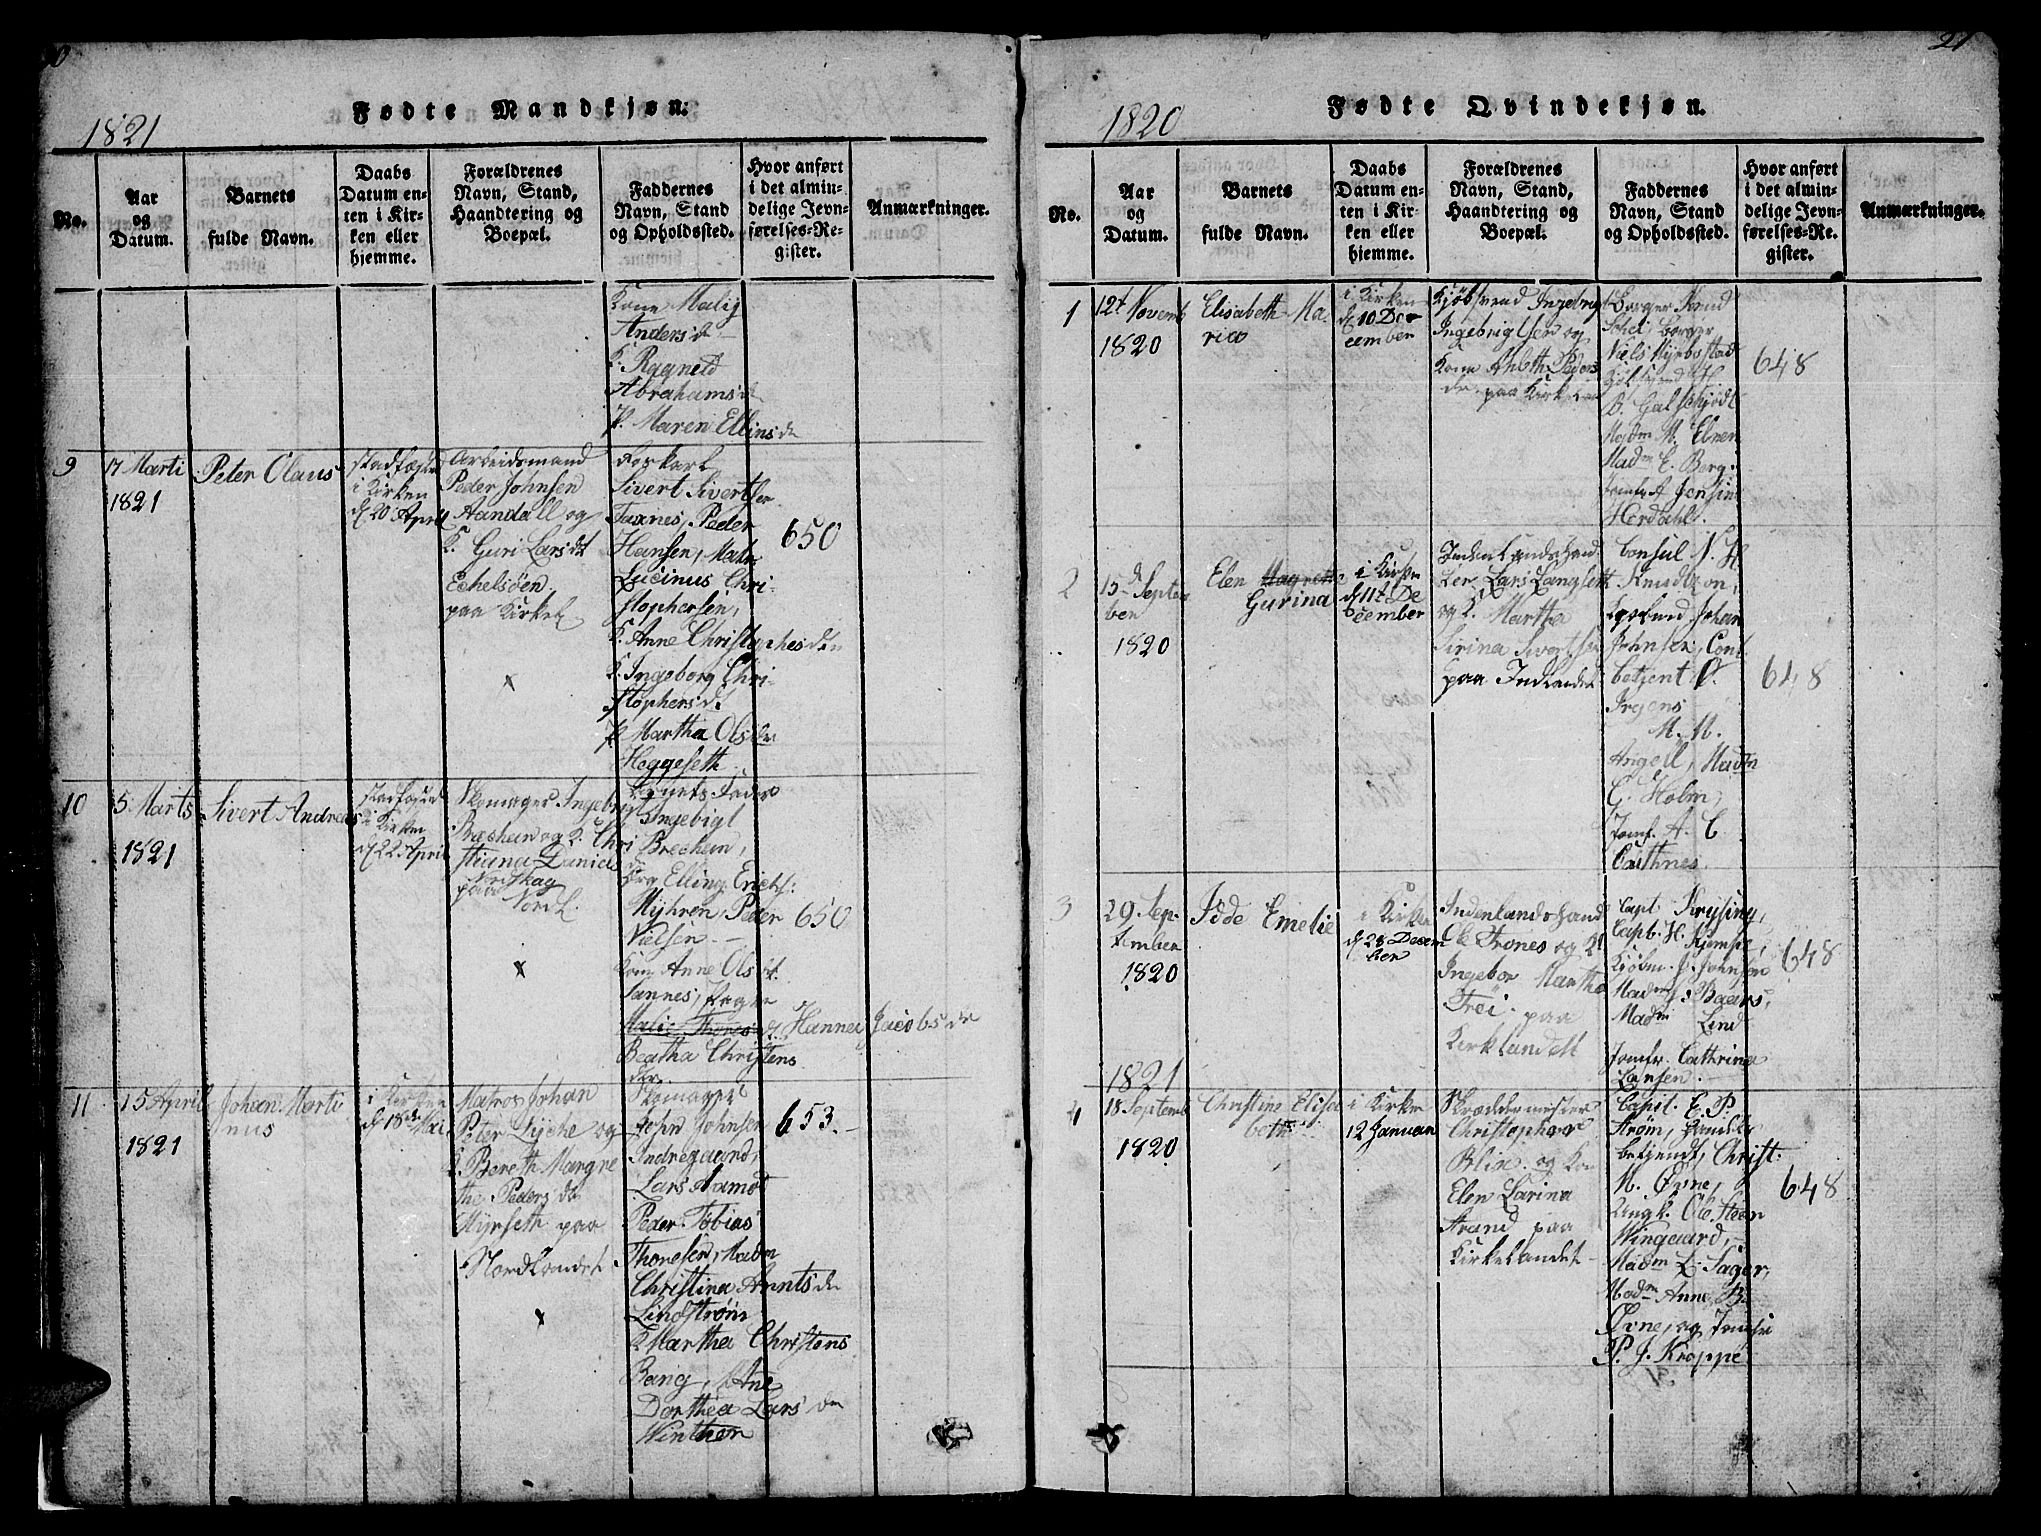 Fødte Mandkjøn.
1821
No.
Aar
og
Datum.
Barnets
fulde Navn.
Daabs
Datum en-
ten i Kir-
ken eller
hjemme.
Forældrenes
Navn, Stand,
Haandtering og
Boepæl.
Faddernes
Navn, Stand
og Opholdssted.
Hvor anført
i det almin-
delige Jevn-
førelses-Re-
gister.
Anmærkninger.
Kone Malij
Andersd
K. Ragneld
Abrahamsd
P. Maren Ellinsd
9
17 Marti
1821
Peter Olaus
i Kirken
d 20 April
Arbeidsmand
Peder Johnsen
Aandall og
K. Guri Larsdt
Echelsöen
paa Kirkel
Sivert Sivertsen
Taxnes, Peder
Hansen, Matr
Lucinus Chri-
stophersen,
K. Anne Christophesd
K. Ingeborg Chri-
stophersd.
P. Martha Olsd
Heggeseth
650
10
5 Marts
1821
Sivert Andreas
i Kirken
d 22 April
Skomager Ingebrigt
Brechan og K. Chri
stiana Daniels
paa Nordl.
Barnets Fader
Ingebrigt
Brechan,
Elling Erichs:
Myhren, Peder
Nielsen
Kone Anne Olsdt.
Tannes, Pagne
Malie Hanna Jacobsde
Beatha Christens
de.
650
11
15 April
1821
Johan Marti
nus
i Kirken
d 18de Mai
Matros Johan
Peter Lyche og
K. Bereth Margre
the Pedersdt
Myrseth paa
Nordlandet
Skomager
John Johnsen
Indregaard,
Lars Aamot
Peder Tobias
Thoresen, Madm
Christina Arntsde
Lindstrøm
K Martha Christens
Bang, Ane
Dorthea Larsde
Winther
653.
21
Fødte Qvindekjøn.
1820
No.
Aar
og
Datum.
Barnets
fulde Navn.
Daabs
Datum en-
ten i Kir-
ken eller
hjemme.
Forældrenes
Navn, Stand,
Haandtering og
Boepæl.
Faddernes
Navn, Stand
og Opholdssted.
Hvor anført
i det almin-
delige Jevn-
førelses-Re-
gister.
Anmærkninger.
1
12t Novemb
1820
Elisabeth Ma-
ria
i Kirken
d 10 De
cember
Kjøbsvend Ingebrigt
Ingebrigtsen og
Kone Peders
de. paa Kirkel
Borger Knud
Borger
Niels Myrbostad
B. Galschjödt
Madm M. Ebner
Madm E. Berg
Jomfr A. Jensine
Herdahl.
648
2
15d Septem
ber
1820
Elen Magrethe
Gurina
i Kirken
d 11t De
cember
Indenlandshand
ler Lars Langseth
og K. Martha
Sirina Sivertsen
paa Indlandet
Consul N. H.
Knudtzon,
Johan
Johnsen, Cont
betjent O.
Irgens
M. M.
Angell, Madm
G. Holm,
Jomf. A. C.
Casthnes.
648
3
29 Sep-
tember
1820
Iode Emelie
i Kirken
d 28 Decem
ber
Indenlandshand
Ole Trones og K
Ingebor Martha
Trøi paa
Kirklandet
Capt Krysing,
Capt. H.
Kjøbm. J. Johnsen
Madm Baers,
Madm Lind
Jomfr. Cathrina
Jansen.
648
1821
4
18 Septemb
1820
Christine Elisa
beth
i Kirken
12 Januari
Skreddermester
Christopher
Blix og Kone
Elen Larina
Strand paa
Kirkelandet
Capit. E. P.
Strøm, Handels
betjendt, Christ.
M. Øvne,
Ungk. Ole Steen
Wingaard,
Madm L. Sager,
Madm Anne B.
Øvne, og Jomfr
P. J. Kroppe
648